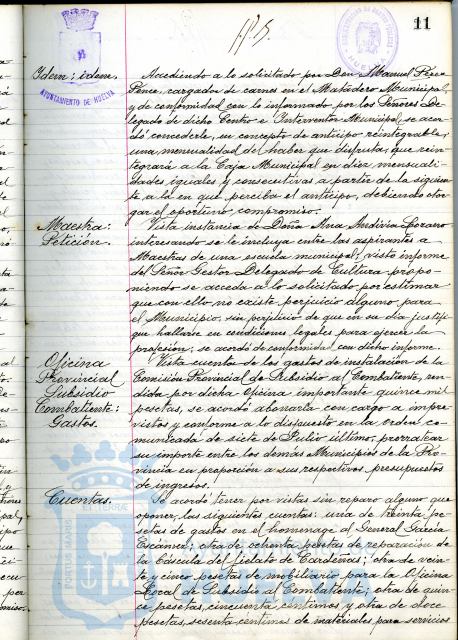 11
AYUNTAMIENTO DE HUELVA
Idem: idem.
Accediendo a lo solicitado por Don Manuel Pérez
Ponce, cargador de carnes en el Matadero Municipal,
y de conformidad con lo informado por los Señores De-
legado de dicho Centro e Interventor Municipal, se acor-
dó concederle, en concepto de anticipo reintegrable,
una mensualidad del haber que disfruta, que rein-
tegrará a la Caja Municipal en diez mensuali-
dades iguales y consecutivas a partir de la siguien-
te, a la en que perciba el anticipo, debiendo otor-
gar el oportuno compromiso.
Maestra:
Petición.
Vista instancia de Doña Ana Andivia Soriano
interesando se le incluya entre las aspirantes a
Maestras de una escuela municipal, visto informe
del Señor Gestor Delegado de Cultura propo-
niendo se acceda a lo solicitado por estimar
que con ello no existe perjuicio alguno para
el Municipio, sin perjuicio de que en su día justifi-
que hallarse en condiciones legales para ejercer la
profesión, se acordó de conformidad con dicho informe.
Oficina
Provincial
Subsidio
Combatiente:
Gastos.
Vista cuenta de los gastos de instalación de la
Comisión Provincial de Subsidio al Combatiente, ren-
dida por dicha Oficina importante quince mil
pesetas, se acordó abonarla con cargo a impre-
vistos y conforme a lo dispuesto en la orden co-
municada de siete de Julio último, prorratear
su importe entre los demás Municipios de la Pro-
vincia en proporción a sus respectivos presupuestos
de ingresos.
Cuentas.
Se acordó tener por vistas sin reparo alguno que
oponer, las siguientes cuentas: una de treinta pe-
setas de gastos en el homenaje al General García
Escámez; otra de ochenta pesetas de reparación de
la báscula del Fielato de Cardeñas; otra de vein-
te y cinco pesetas de mobiliario para la Oficina
Local de Subsidio al Combatiente; otra de quin-
ce pesetas, cincuenta céntimos y otra de doce
pesetas, sesenta céntimos de materiales para servicios